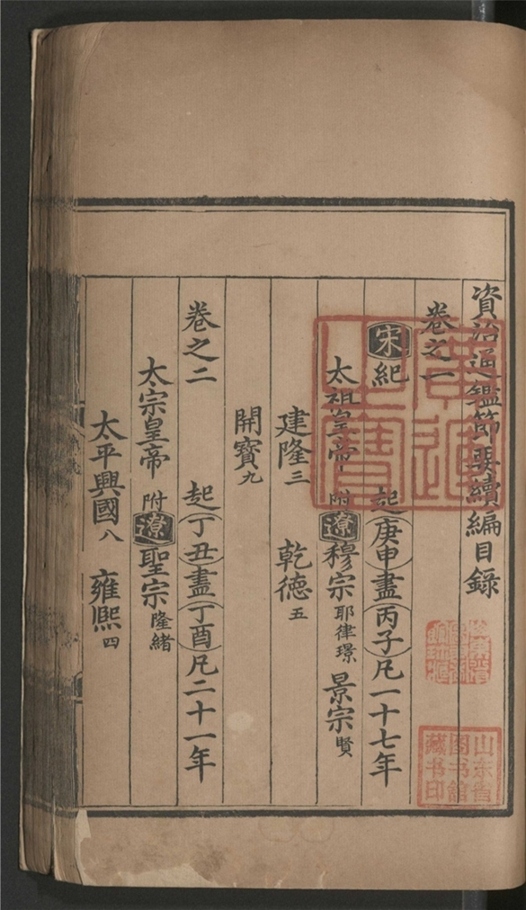 資治通鑑節要續編目錄
卷之一
宋紀 起庚申盡丙子凡一十七年
太祖皇帝 附遼穆宗耶律璟 景宗賢
建隆三 乾德五
開寶九
卷之二
起丁丑盡丁酉凡二十一年
太宗皇帝 附遼聖宗隆緒
太平興國八 雍熙四
山东省
图书馆
藏书印